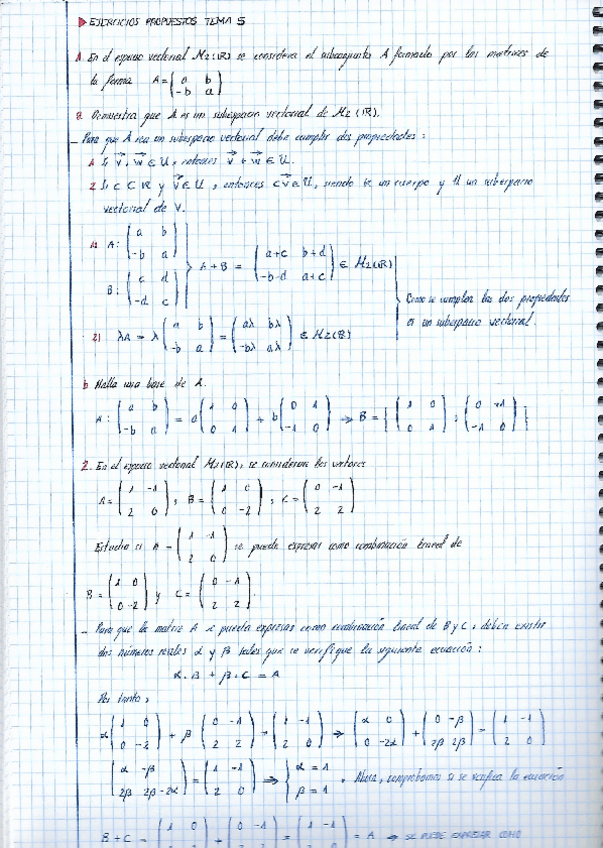 ▶ EJERCICIOS PROPUESTOS TEMA 5
1. En el espacio vectorial M2(ℝ) se considera el subconjunto A formado por las matrices de
la forma A = ( a b ; -b a )
a Demuestra que A es un subespacio vectorial de M2(ℝ).
_ Para que A sea un subespacio vectorial debe cumplir dos propiedades:
1. Si v, w ∈ U, entonces v + w ∈ U.
2. Si c ⊂ ℝ y v ∈ U, entonces cv ∈ U, siendo un cuerpo y U un subespacio
vectorial de V.
1) A: ( a b ; -b a )
B: ( c d ; -d c )
A + B = ( a+c b+d ; -b-d a+c ) ∈ M2(ℝ)
2) λA = λ ( a b ; -b a ) = ( aλ bλ ; -bλ aλ ) ∈ M2(ℝ)
Como se cumplen las dos propiedades
es un subespacio vectorial.
b Halla una base de A.
A: ( a b ; -b a ) = a ( 1 0 ; 0 1 ) + b ( 0 1 ; -1 0 ) → B = { ( 1 0 ; 0 1 ) ; ( 0 1 ; -1 0 ) }
2. En el espacio vectorial M2(ℝ), se consideran los vectores
A = ( 1 -1 ; 2 0 ) , B = ( 1 0 ; 0 -2 ) , C = ( 0 -1 ; 2 2 )
Estudia si A = ( 1 -1 ; 2 0 ) se puede expresar como combinación lineal de
B = ( 1 0 ; 0 -2 ) y C = ( 0 -1 ; 2 2 ).
_ Para que la matriz A se pueda expresar como combinación lineal de B y C, deben existir
dos números reales α y β tales que se verifique la siguiente ecuación:
α · B + β · C = A
Por tanto,
α ( 1 0 ; 0 -2 ) + β ( 0 -1 ; 2 2 ) = ( 1 -1 ; 2 0 ) ⇒ ( α 0 ; 0 -2α ) + ( 0 -β ; 2β 2β ) = ( 1 -1 ; 2 0 )
( α -β ; 2β 2β-2α ) = ( 1 -1 ; 2 0 ) ⇒ { α = 1 ; β = 1 . Ahora, comprobamos si se verifica la ecuación
B + C = ( 1 0 ) + ( 0 -1 ) = ( 1 -1 ) = A → SE PUEDE EXPRESAR COMO